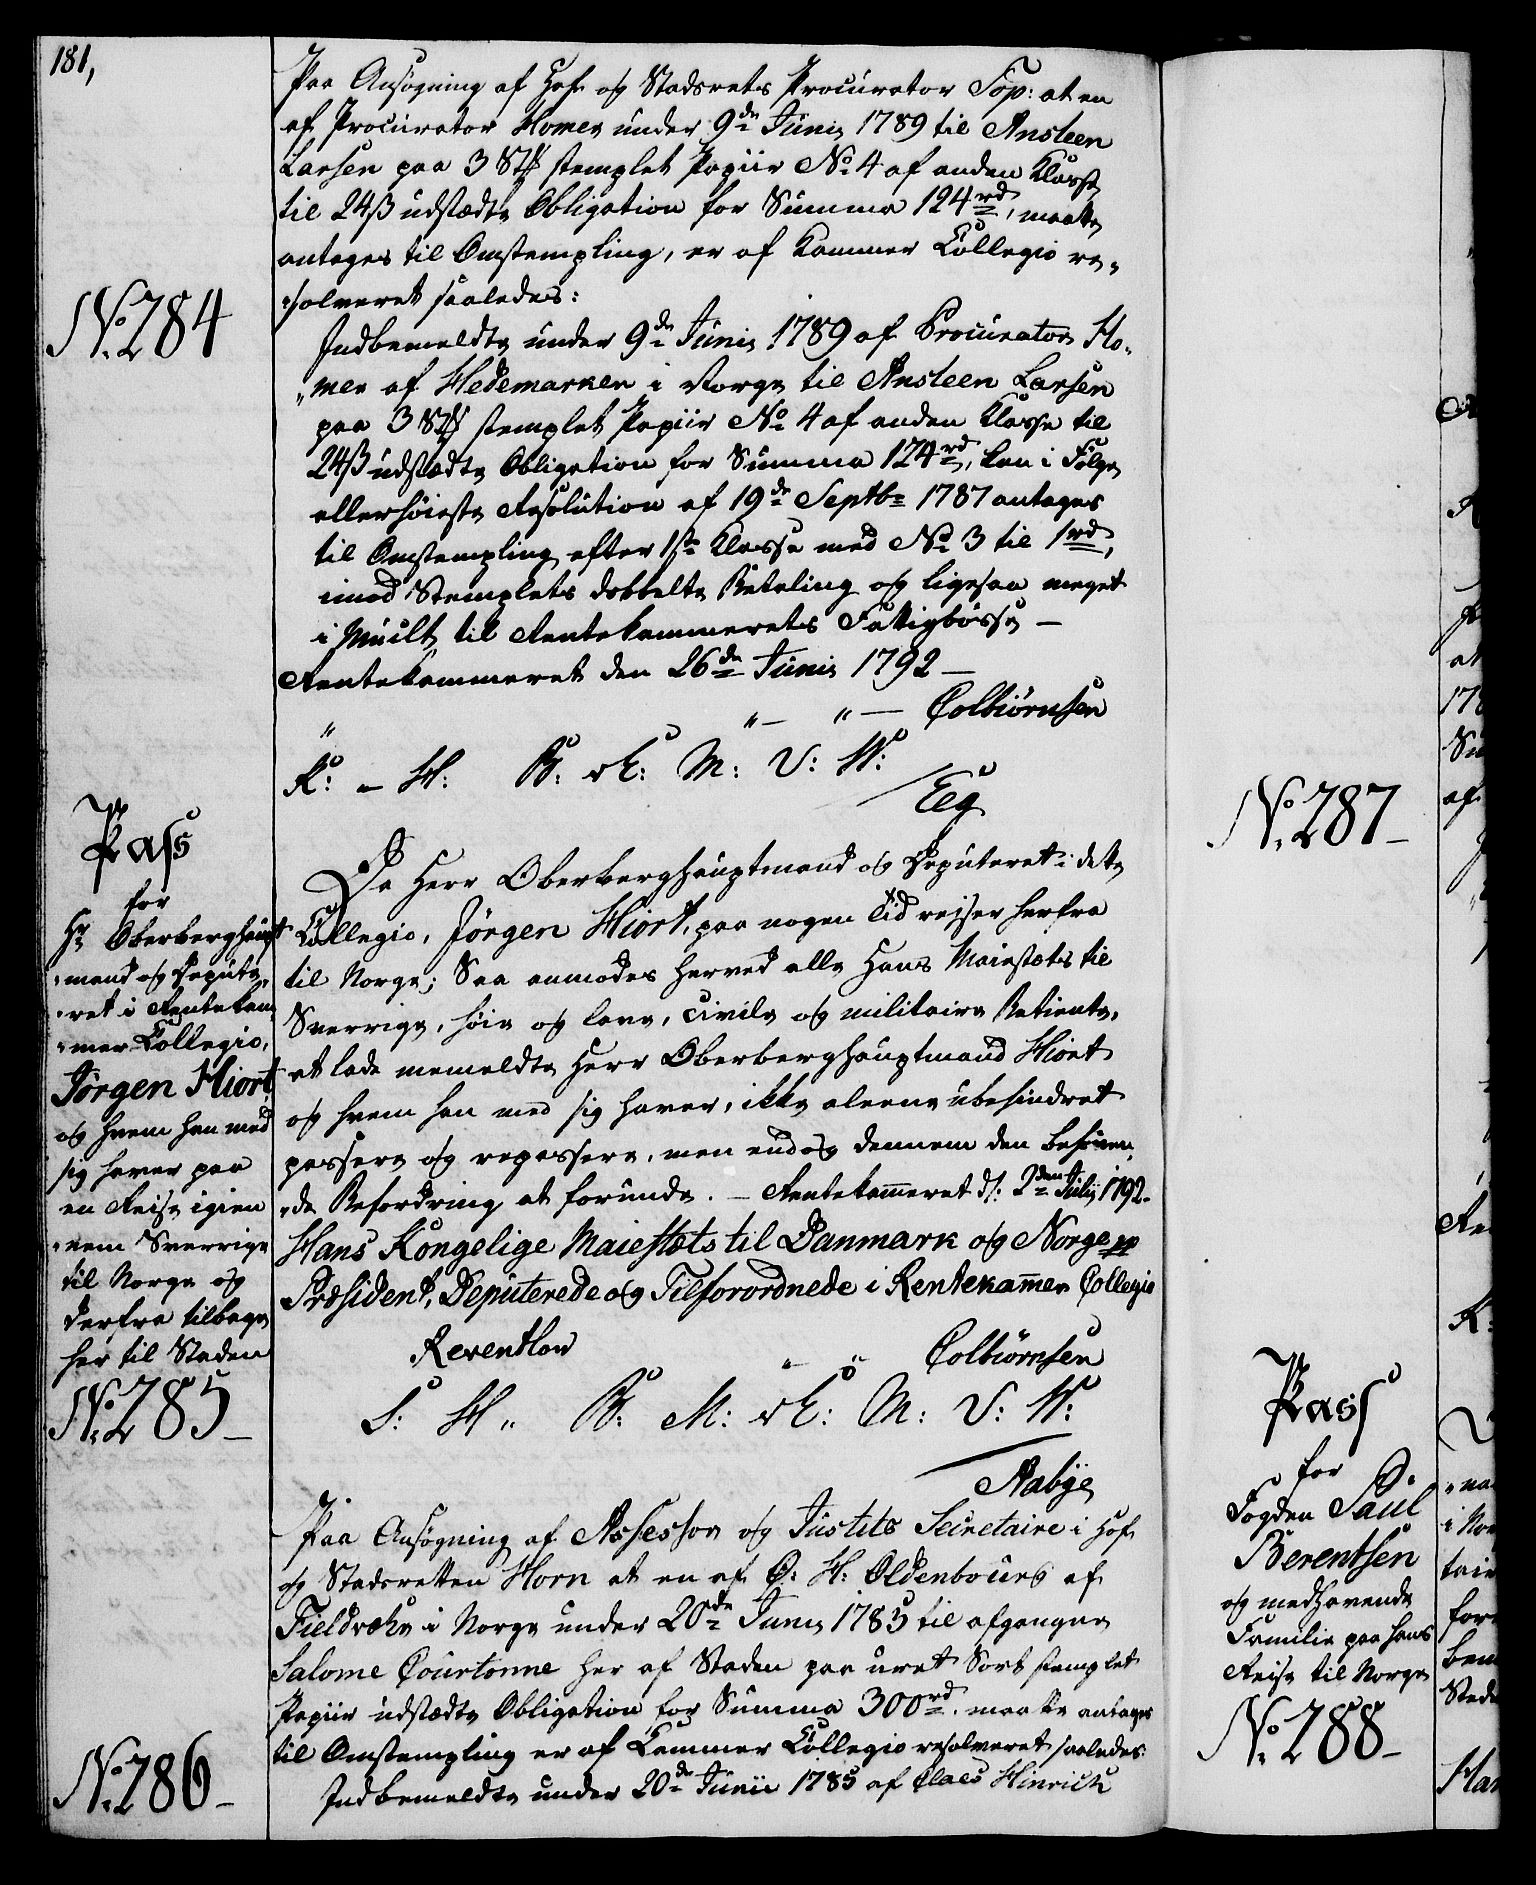 181,
Paa Ansøgning af Hof og Stadsrets Procurator Top: at en
af Procurator Homen under 9de Junii 1789 til Ansteen
Larsen paa 3 Stk stemplet Papiir No 4 af anden Klasse
til 24ß udstædte Obligation for Summa 124rd, maatte
antages til Omstempling, er af Kammer Collegio re„
„solveret saaledes:
No. 284
Indbemeldte under 9de Junii 1789 af Procurator Ho„
„men af Hedemarken i Norge til Ansteen Larsen
paa 3 Stk stemplet Papiir No 4 af anden Klasse til
24ß udstædte Obligation for Summa 124rd, kan i Følge
allerhøieste Resolution af 19de Septbr 1787 antages
til Omstempling efter 1ste Klasse med No 3 til 1rd,
imod Stemplets dobbelte Betaling og ligesaa meget
i Mulct til Rentekammerets Fattigbøsse —
Rentekammeret den 26de Junii 1792 —
„ „— „— Colbiørnsen
R: – H: B: M: V: W:
Eeg
Pass
for
Hr Oberberghaupt
„mand og Deputee„
„ret i Rentekam
„mer Collegio,
Jørgen Hiort
og hvem han med
sig haver paa
en Reise igien
„nem Sverrige
til Norge og
derfra tilbage
her til Staden
No. 285 –
Da Herr Oberberghauptmand og Deputeret i dette
Collegio, Jørgen Hiort, paa nogen Tid reiser herfra
til Norge; Saa anmodes herved alle Hans Maiestæts til
Sverrige, høie og lave, civile og militaire Betiente,
at lade ermeldte Herr Oberberghauptmand Hiort
og hvem han med sig haver, ikke aleene ubehindret
passere og repassere, men endog dennem den behøven„
„de Befordring at forunde. – Rentekam̄eret d: 2den Julij 1792.
Hans Kongelige Maiestæts til Danmark og Norge pp
Præsident, Deputerede og Tilforordnede i Rentekam̄er Collegio
Reventlow „ „ Colbiørnsen
S: H „ B: M: M: V: W:
Aabye
Paa Ansøgning af Assessor og Justits Secretaire i Hof
og Stadsretten Horn at en af C: H: Oldenbourg af
Fieldvche i Norge under 20de Junii 1785 til afgangne
Salome Courtonne her af Staden paa uret Sort stemplet
Papiir udstædte Obligation for Summa 300rd. maatte antages
til Omstempling er af Kammer Collegio resolveret saaledes:
No. 286 –
Indbemeldte under 20de Junii 1785 af Claes Hinrich
No. 287 –
Pass
for
Fogden Paul
Berentsen
og medhavende
Familie paa hans
Reise til Norge
No. 288 –